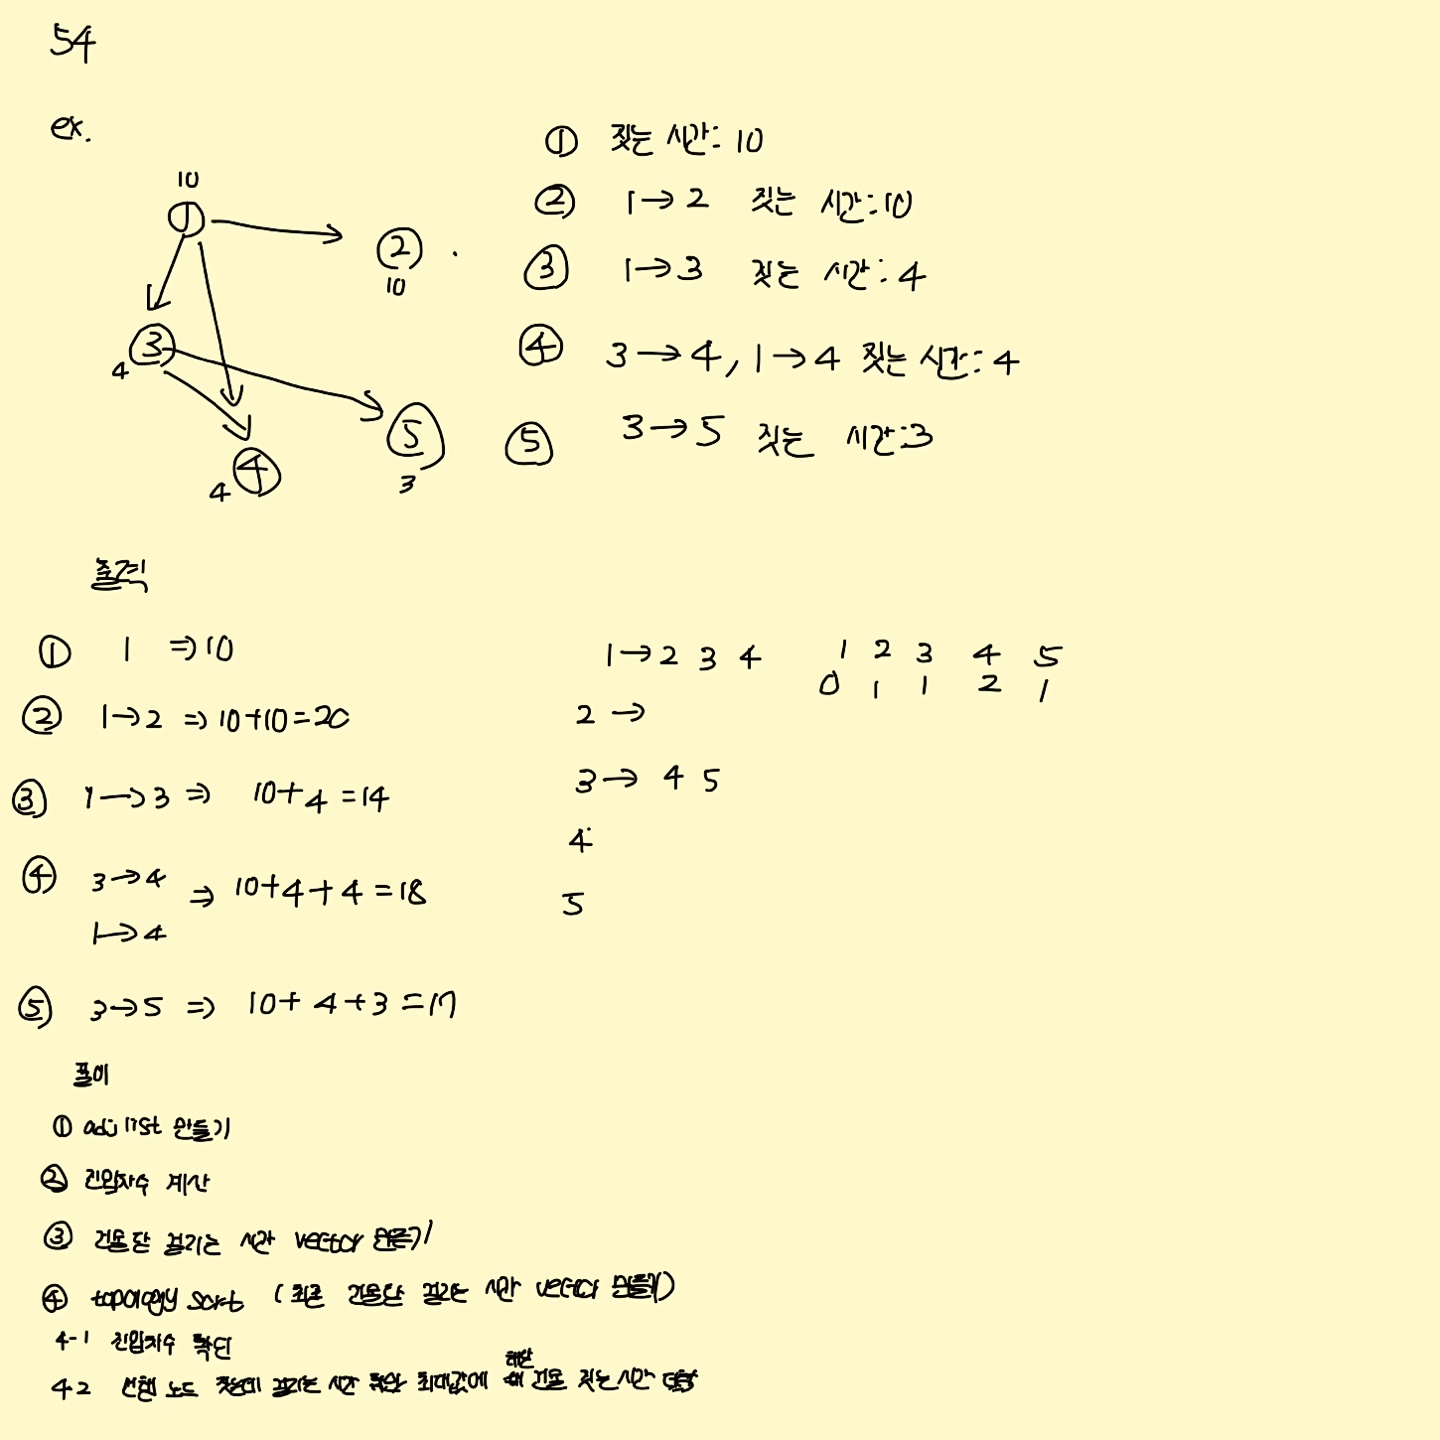 54
ex.
10
①
②
10
③
4
④
4
⑤
3
① 짓는 시간: 10
② 1→2 짓는 시간:10
③ 1→3 짓는 시간:4
④ 3→4, 1→4 짓는 시간:4
⑤ 3→5 짓는 시간:3
출력
① 1 ⇒10
② 1→2 ⇒ 10+10=20
③ 1→3 ⇒ 10+4=14
④ 3→4
1→4 ⇒ 10+4+4=18
⑤ 3→5 ⇒ 10+4+3=17
1→2 3 4
2→
3→ 4 5
4
5
1 2 3 4 5
0 1 1 2 1
풀이
① adj list 만들기
② 진입차수 계산
③ 건물당 걸리는 시간 vector 만들기
④ topology sort (최종 건물당 걸리는 시간 vector 만들기)
4-1 진입차수 확인
4-2 선행 노드 짓는데 걸리는 시간 최대값에 해당 건물 짓는 시간